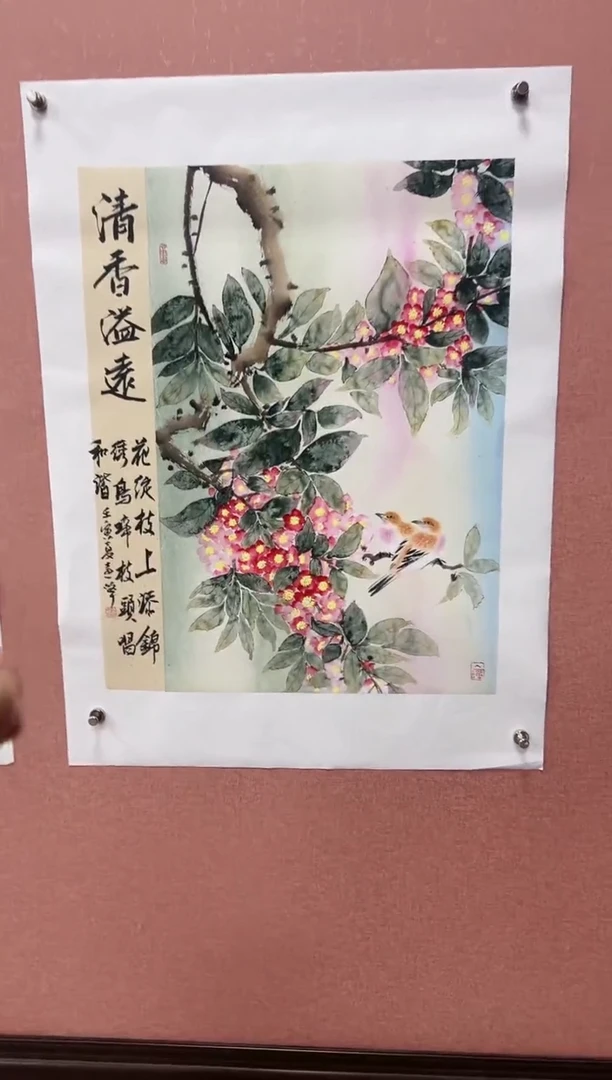 清香溢遠
花綻枝上添錦
綉鳥啼枝頭唱
和諧 壬寅夏